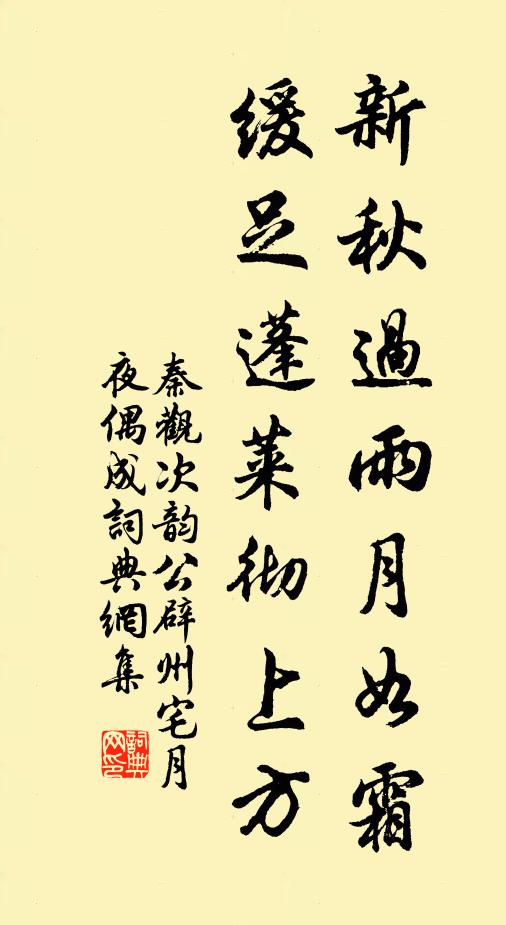 新秋過雨月如霜
緩足蓬萊彻上方
秦觀次韵公辟州宅月
夜偶成詞典網集
詞典
网印